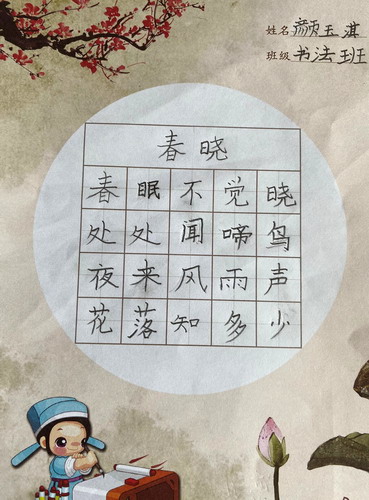 姓名 颜玉淇
班级 书法班
春晓
春眠不觉晓
处处闻啼鸟
夜来风雨声
花落知多少